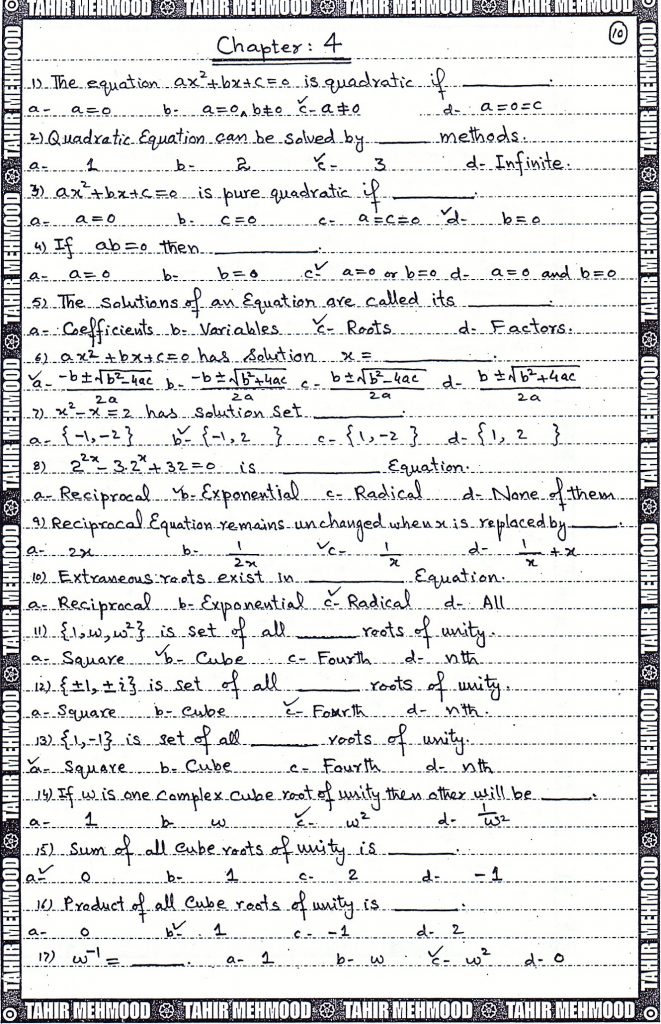 TAHIR MEHMOOD TAHIR MEHMOOD TAHIR MEHMOOD TAHIR MEHMOOD
10
Chapter: 4
1) The equation ax²+bx+c=0 is quadratic if ______.
a- a=0 b- a=0, b≠0 ✓c- a≠0 d- a=0=c
2) Quadratic Equation can be solved by ______ methods.
a- 1 b- 2 ✓c- 3 d- Infinite.
3) ax²+bx+c=0 is pure quadratic if ______.
a- a=0 b- c=0 c- a=c=0 ✓d- b=0
4) If ab=0 then ______.
a- a=0 b- b=0 c✓ a=0 or b=0 d- a=0 and b=0
5) The solutions of an Equation are called its ______.
a- Coefficients b- Variables ✓c- Roots d- Factors.
6) ax²+bx+c=0 has solution x = ______.
✓a- (-b±√b²-4ac)/2a b- (-b±√b²+4ac)/2a c- (b±√b²-4ac)/2a d- (b±√b²+4ac)/2a
7) x²-x=2 has solution set ______.
a- {-1,-2} b✓ {-1,2 } c- {1,-2 } d- {1, 2 }
8) 2²ˣ-3.2ˣ+32=0 is ______ Equation.
a- Reciprocal ✓b- Exponential c- Radical d- None of them
9) Reciprocal Equation remains unchanged when x is replaced by ______.
a- 2x b- 1/2x ✓c- 1/x d- 1/x + x
10) Extraneous roots exist in ______ Equation.
a- Reciprocal b- Exponential ✓c- Radical d- All
11) {1,ω,ω²} is set of all ______ roots of unity.
a- Square ✓b- Cube c- Fourth d- nth
12) {±1, ±i} is set of all ______ roots of unity.
a- Square b- Cube ✓c- Fourth d- nth.
13) {1,-1} is set of all ______ roots of unity.
✓a- Square b- Cube c- Fourth d- nth
14) If ω is one complex cube root of unity then other will be ______.
a- 1 b- ω ✓c- ω² d- 1/ω²
15) Sum of all cube roots of unity is ______.
a✓ 0 b- 1 c- 2 d- -1
16) Product of all Cube roots of unity is ______.
a- 0 b✓ 1 c- -1 d- 2
17) ω⁻¹ = ______. a- 1 b- ω ✓c- ω² d- 0
TAHIR MEHMOOD TAHIR MEHMOOD TAHIR MEHMOOD TAHIR MEHMOOD
TAHIR MEHMOOD TAHIR MEHMOOD TAHIR MEHMOOD TAHIR MEHMOOD TAHIR MEHMOOD TAHIR MEHMOOD
TAHIR MEHMOOD TAHIR MEHMOOD TAHIR MEHMOOD TAHIR MEHMOOD TAHIR MEHMOOD TAHIR MEHMOOD